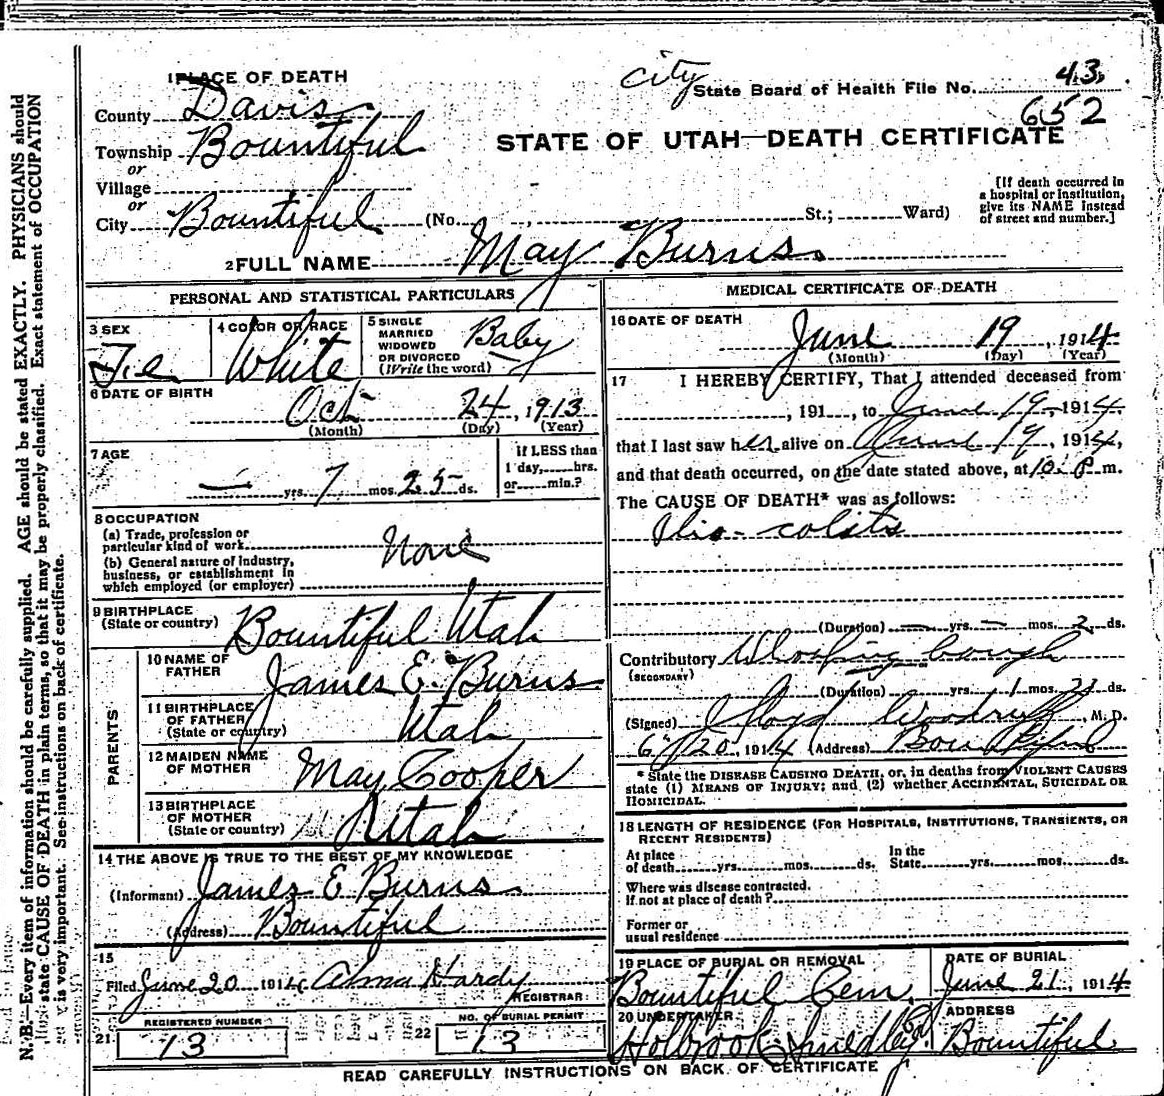 N.B.—Every item of information should be carefully supplied. AGE should be stated EXACTLY. PHYSICIANS should
state CAUSE OF DEATH in plain terms, so that it may be properly classified. Exact statement of OCCUPATION
is very important. See instructions on back of certificate.
1 PLACE OF DEATH
City
State Board of Health File No. 43
652
County Davis
STATE OF UTAH—DEATH CERTIFICATE
Township Bountiful
or
Village
or
City Bountiful (No. St.; Ward)
[If death occurred in
a hospital or institution,
give its NAME instead
of street and number.]
2 FULL NAME May Burns
PERSONAL AND STATISTICAL PARTICULARS
3 SEX Fe
4 COLOR OR RACE White
5 SINGLE
MARRIED
WIDOWED
OR DIVORCED
(Write the word)
Baby
6 DATE OF BIRTH
Oct 24, 1913
(Month) (Day) (Year)
7 AGE
— yrs. 7 mos. 25 ds.
If LESS than
1 day, hrs.
or min.?
8 OCCUPATION
(a) Trade, profession or
particular kind of work None
(b) General nature of industry,
business, or establishment in
which employed (or employer)
9 BIRTHPLACE
(State or country) Bountiful Utah
PARENTS
10 NAME OF
FATHER James E. Burns
11 BIRTHPLACE
OF FATHER
(State or country) Utah
12 MAIDEN NAME
OF MOTHER May Cooper
13 BIRTHPLACE
OF MOTHER
(State or country) Utah
14 THE ABOVE IS TRUE TO THE BEST OF MY KNOWLEDGE
(Informant) James E Burns
(Address) Bountiful
15
Filed June 20 1914 Alma Hardy
REGISTRAR
REGISTERED NUMBER
21 13
NO. OF BURIAL PERMIT
22 13
MEDICAL CERTIFICATE OF DEATH
16 DATE OF DEATH
June 19, 1914
(Month) (Day) (Year)
17 I HEREBY CERTIFY, That I attended deceased from
, 191 , to June 19 1914
that I last saw her alive on June 19, 1914,
and that death occurred, on the date stated above, at 10 P m.
The CAUSE OF DEATH* was as follows:
Ilio-colitis
(Duration) — yrs. — mos. 2 ds.
Contributory Whooping Cough
(SECONDARY)
(Duration) yrs. 1 mos. ds.
(Signed) Lloyd Woodruff, M. D.
6/20, 1914 (Address) Bountiful
* State the DISEASE CAUSING DEATH, or, in deaths from VIOLENT CAUSES
state (1) MEANS OF INJURY; and (2) whether ACCIDENTAL, SUICIDAL OR
HOMICIDAL.
18 LENGTH OF RESIDENCE (FOR HOSPITALS, INSTITUTIONS, TRANSIENTS, OR
RECENT RESIDENTS)
At place
of death yrs. mos. ds.
In the
State yrs. mos. ds.
Where was disease contracted.
If not at place of death?
Former or
usual residence
19 PLACE OF BURIAL OR REMOVAL
Bountiful Cem.
DATE OF BURIAL
June 21, 1914
20 UNDERTAKER
Holbrook-Smedley Co
ADDRESS
Bountiful
READ CAREFULLY INSTRUCTIONS ON BACK OF CERTIFICATE